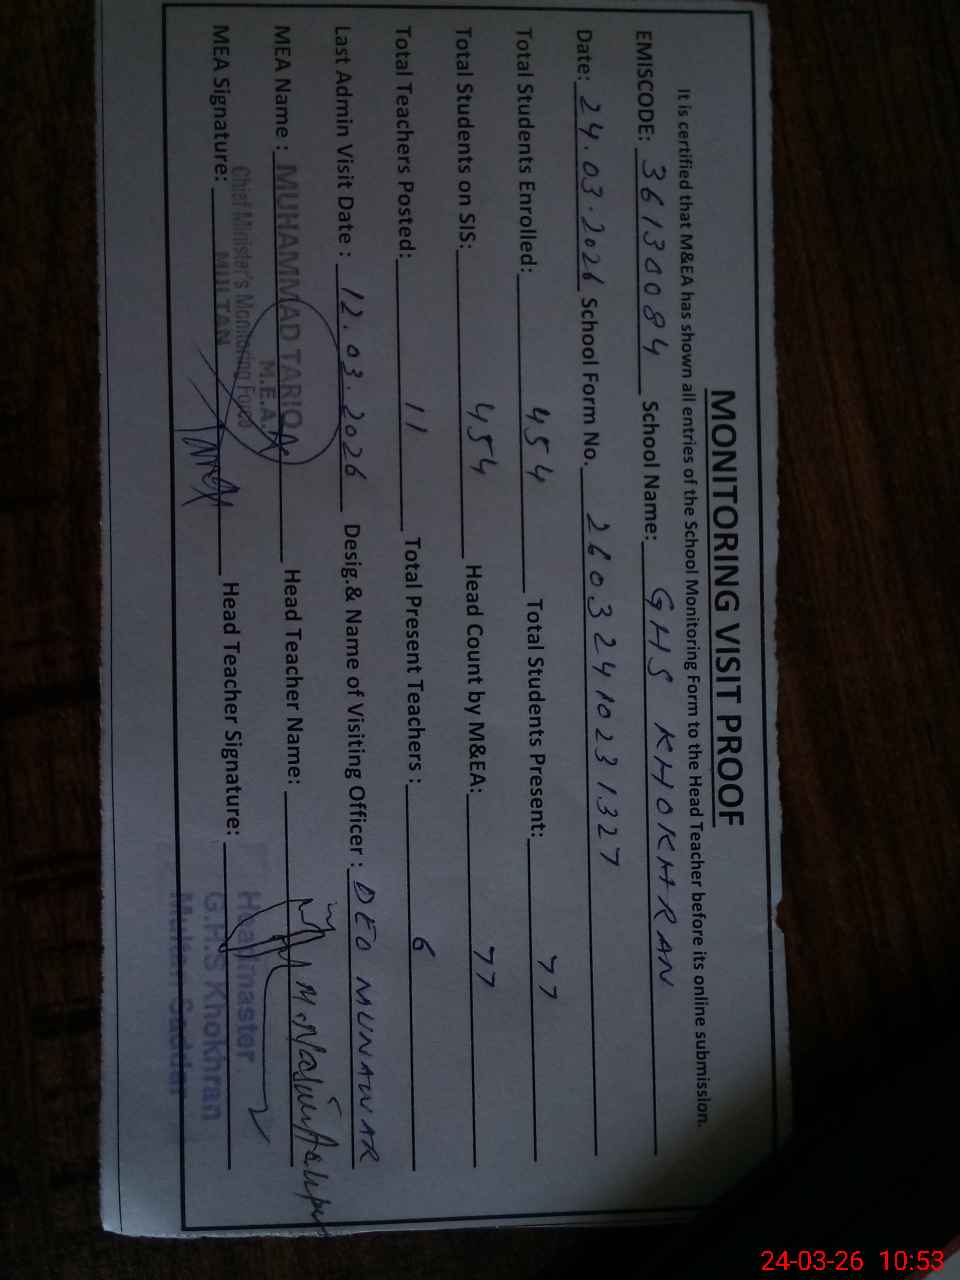 MONITORING VISIT PROOF
It is certified that M&EA has shown all entries of the School Monitoring Form to the Head Teacher before its online submission.
EMISCODE: 36130084 School Name: GHS KHOKHRAN
Date: 24.03.2026 School Form No. 26032410231327
Total Students Enrolled: 454 Total Students Present: 77
Total Students on SIS: 454 Head Count by M&EA: 77
Total Teachers Posted: 11 Total Present Teachers : 6
Last Admin Visit Date : 12.03.2026 Desig.& Name of Visiting Officer : DEO MUNAWAR
MEA Name : MUHAMMAD TARIQ Head Teacher Name:
M.E.A.
Chief Minister's Monitoring Force
MULTAN
MEA Signature: Head Teacher Signature:
Headmaster
G.H.S Khokhran
Multan Saddar
24-03-26 10:53